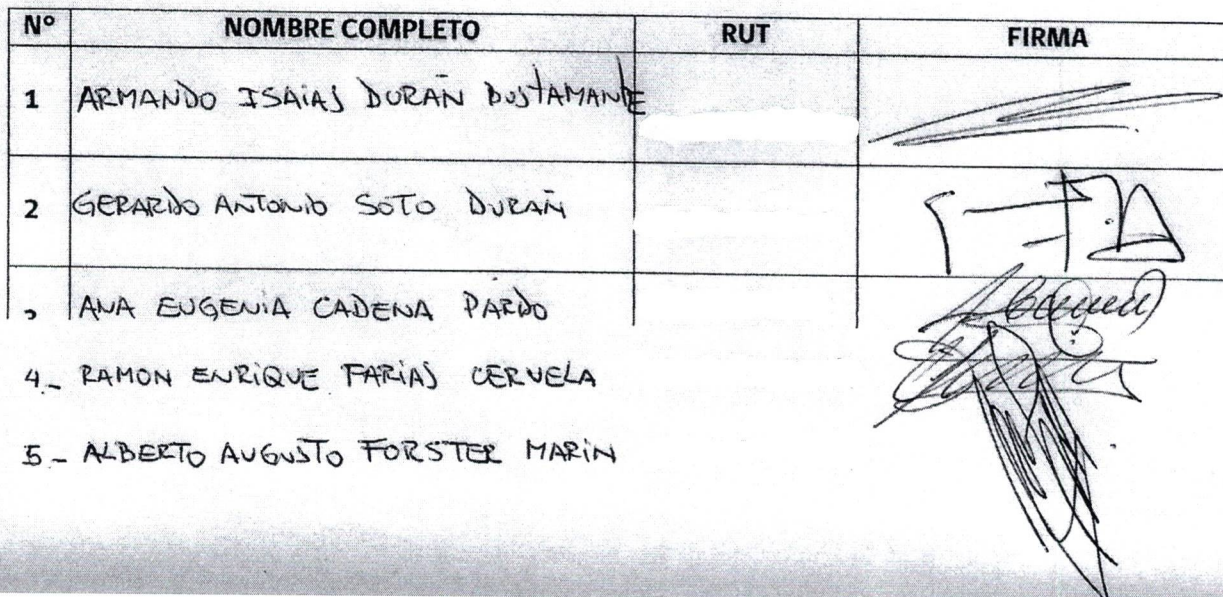 Nº NOMBRE COMPLETO RUT FIRMA
1 ARMANDO ISAIAS DURAN BUSTAMANTE
2 GERARDO ANTONIO SOTO DURAN
ANA EUGENIA CADENA PARDO
4_ RAMON ENRIQUE FARIAS CERVELA
5_ ALBERTO AUGUSTO FORSTER MARIN